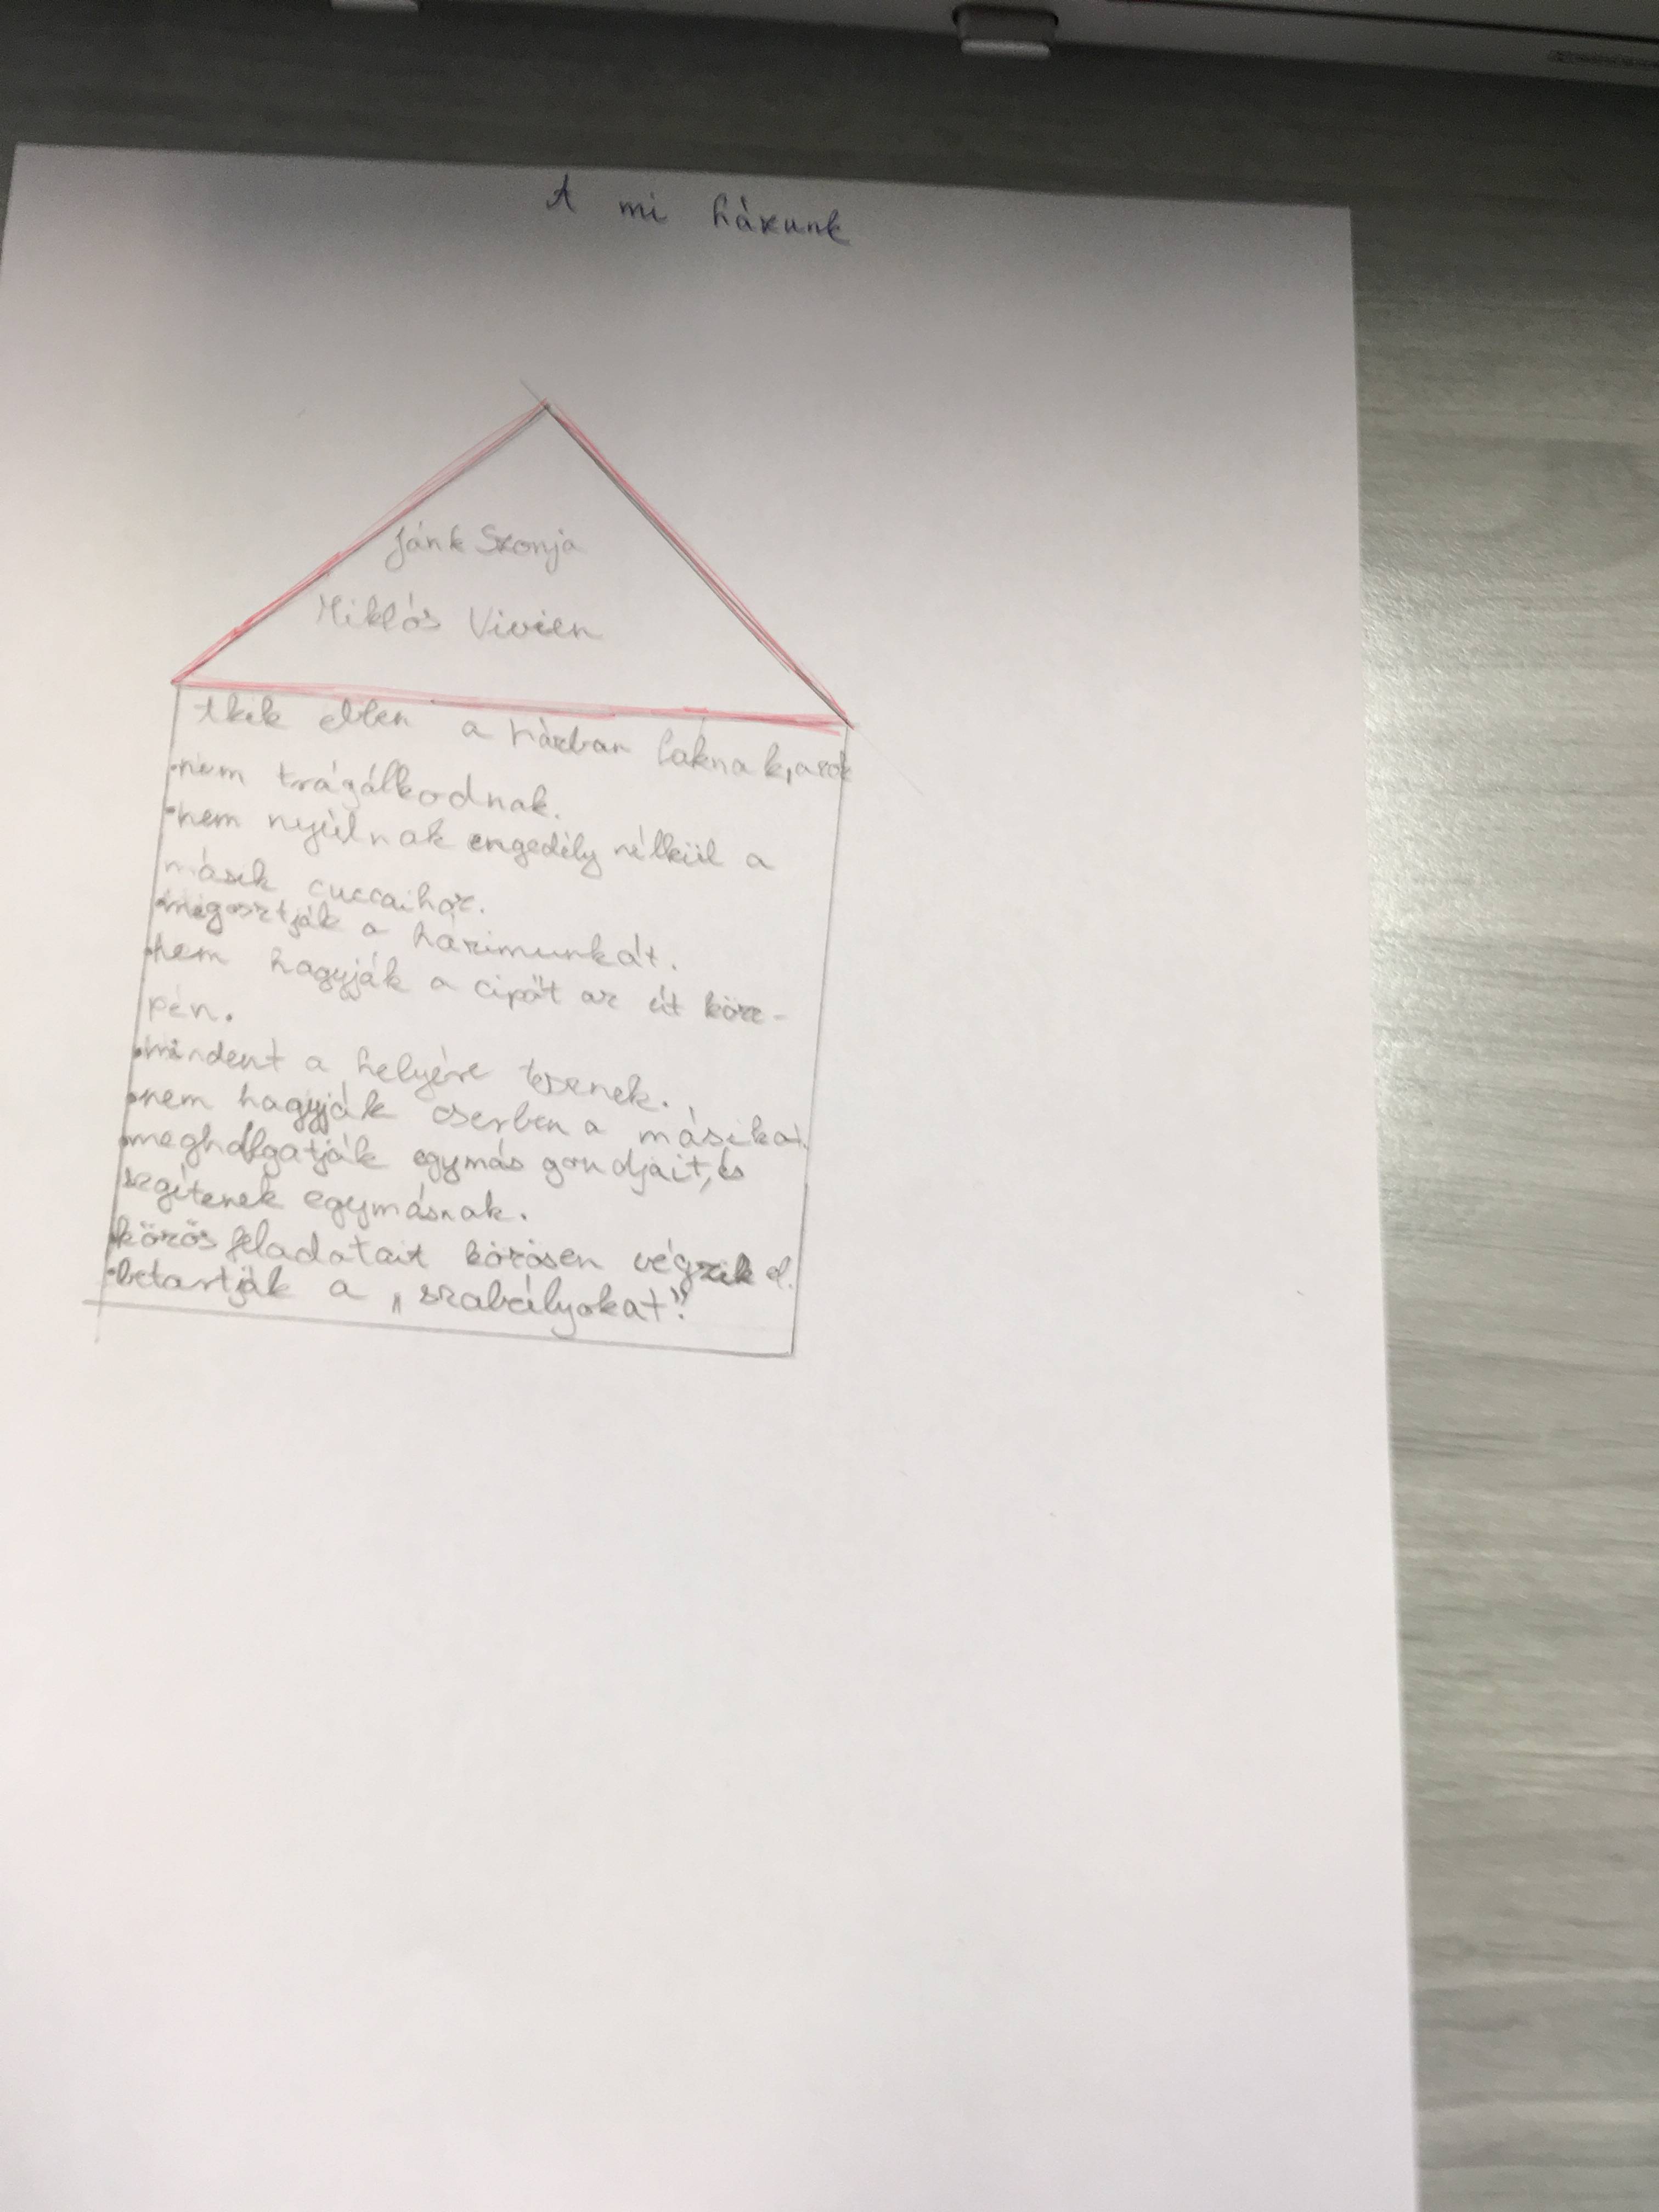 A mi házunk
Jánk Szonja
Miklós Vivien
Akik ebben a házban laknak, azok
•nem trágálkodnak.
•nem nyúlnak engedély nélkül a
másik cuccaihoz.
•megosztják a házimunkát.
•nem hagyják a cipőt az út köze-
pén.
•mindent a helyére tesznek.
•nem hagyják cserben a másikat.
•meghallgatják egymás gondjait, és
segítenek egymásnak.
•közös feladatait közösen végzik el.
•betartják a „szabályokat".